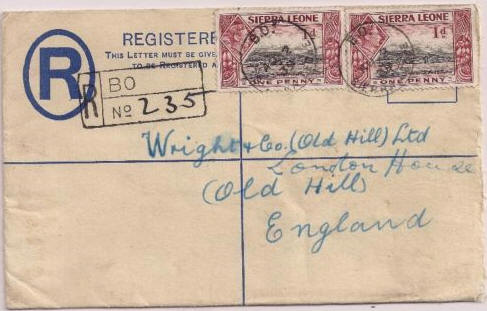 REGISTERE
THIS LETTER MUST BE GIVE
TO BE REGISTERED A
R
SIERRA LEONE
1d
ONE PENNY
SIERRA LEONE
1d
ONE PENNY
BO
R
No 235
Wright & Co. (Old Hill) Ltd
London House
(Old Hill)
England